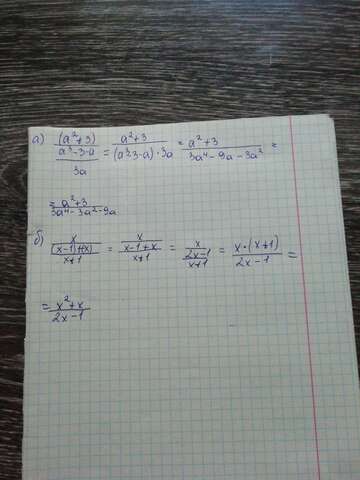 а) (a²+3)/(a³-3-a)/3a = a²+3/(a³-3-a)·3a = a²+3/3a⁴-9a-3a² =
= a²+3/3a⁴-3a²-9a
б) x/(x-1)+(x)/x+1 = x/x-1+x/x+1 = x/2x-1/x+1 = x·(x+1)/2x-1 =
= x²+x/2x-1